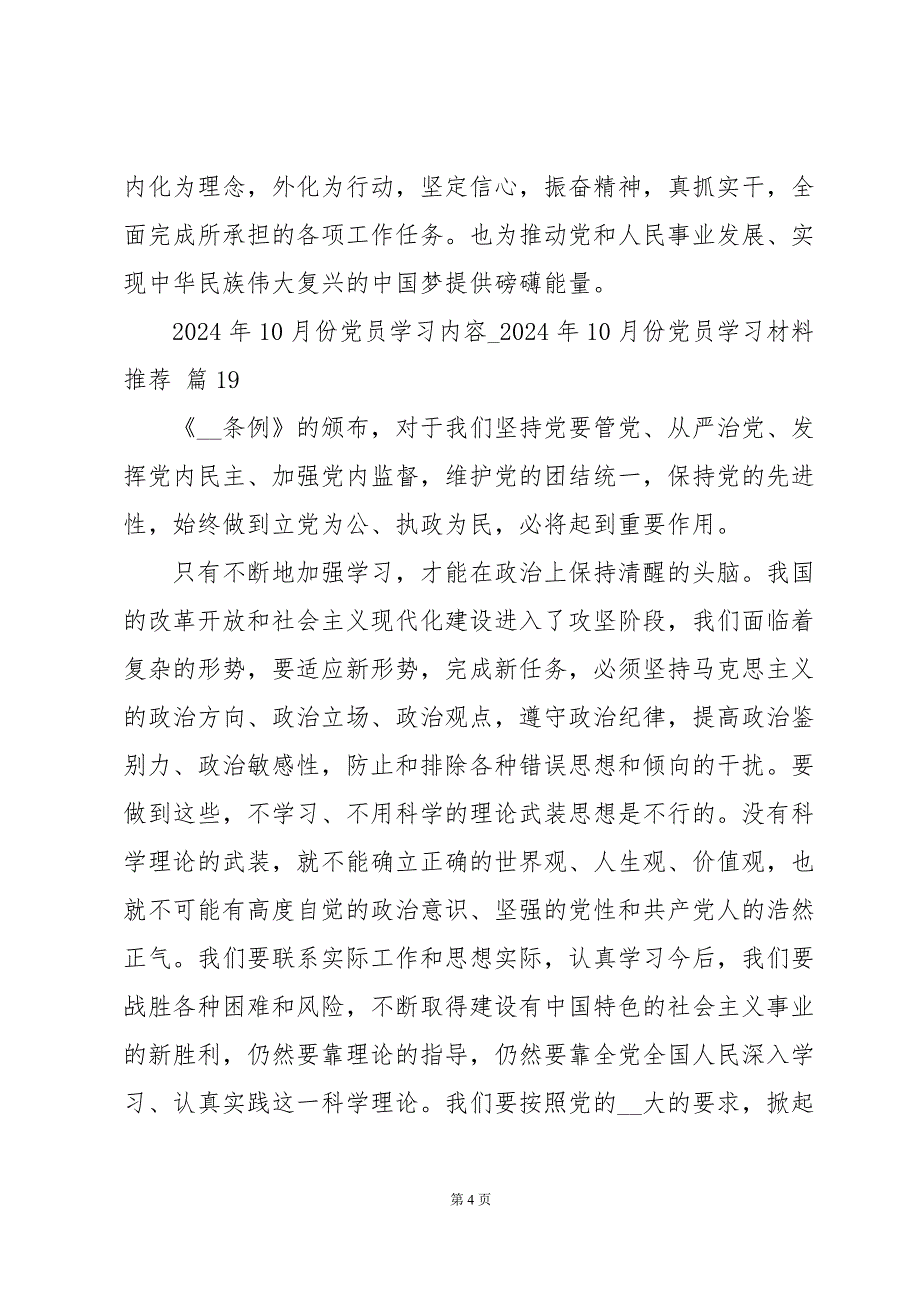 内化为理念，外化为行动，坚定信心，振奋精神，真抓实干，全
面完成所承担的各项工作任务。也为推动党和人民事业发展、实
现中华民族伟大复兴的中国梦提供磅礴能量。
2024 年 10 月份党员学习内容_2024 年 10 月份党员学习材料
推荐 篇 19
《__条例》的颁布，对于我们坚持党要管党、从严治党、发
挥党内民主、加强党内监督，维护党的团结统一，保持党的先进
性，始终做到立党为公、执政为民，必将起到重要作用。
只有不断地加强学习，才能在政治上保持清醒的头脑。我国
的改革开放和社会主义现代化建设进入了攻坚阶段，我们面临着
复杂的形势，要适应新形势，完成新任务，必须坚持马克思主义
的政治方向、政治立场、政治观点，遵守政治纪律，提高政治鉴
别力、政治敏感性，防止和排除各种错误思想和倾向的干扰。要
做到这些，不学习、不用科学的理论武装思想是不行的。没有科
学理论的武装，就不能确立正确的世界观、人生观、价值观，也
就不可能有高度自觉的政治意识、坚强的党性和共产党人的浩然
正气。我们要联系实际工作和思想实际，认真学习今后，我们要
战胜各种困难和风险，不断取得建设有中国特色的社会主义事业
的新胜利，仍然要靠理论的指导，仍然要靠全党全国人民深入学
习、认真实践这一科学理论。我们要按照党的__大的要求，掀起
第 4 页